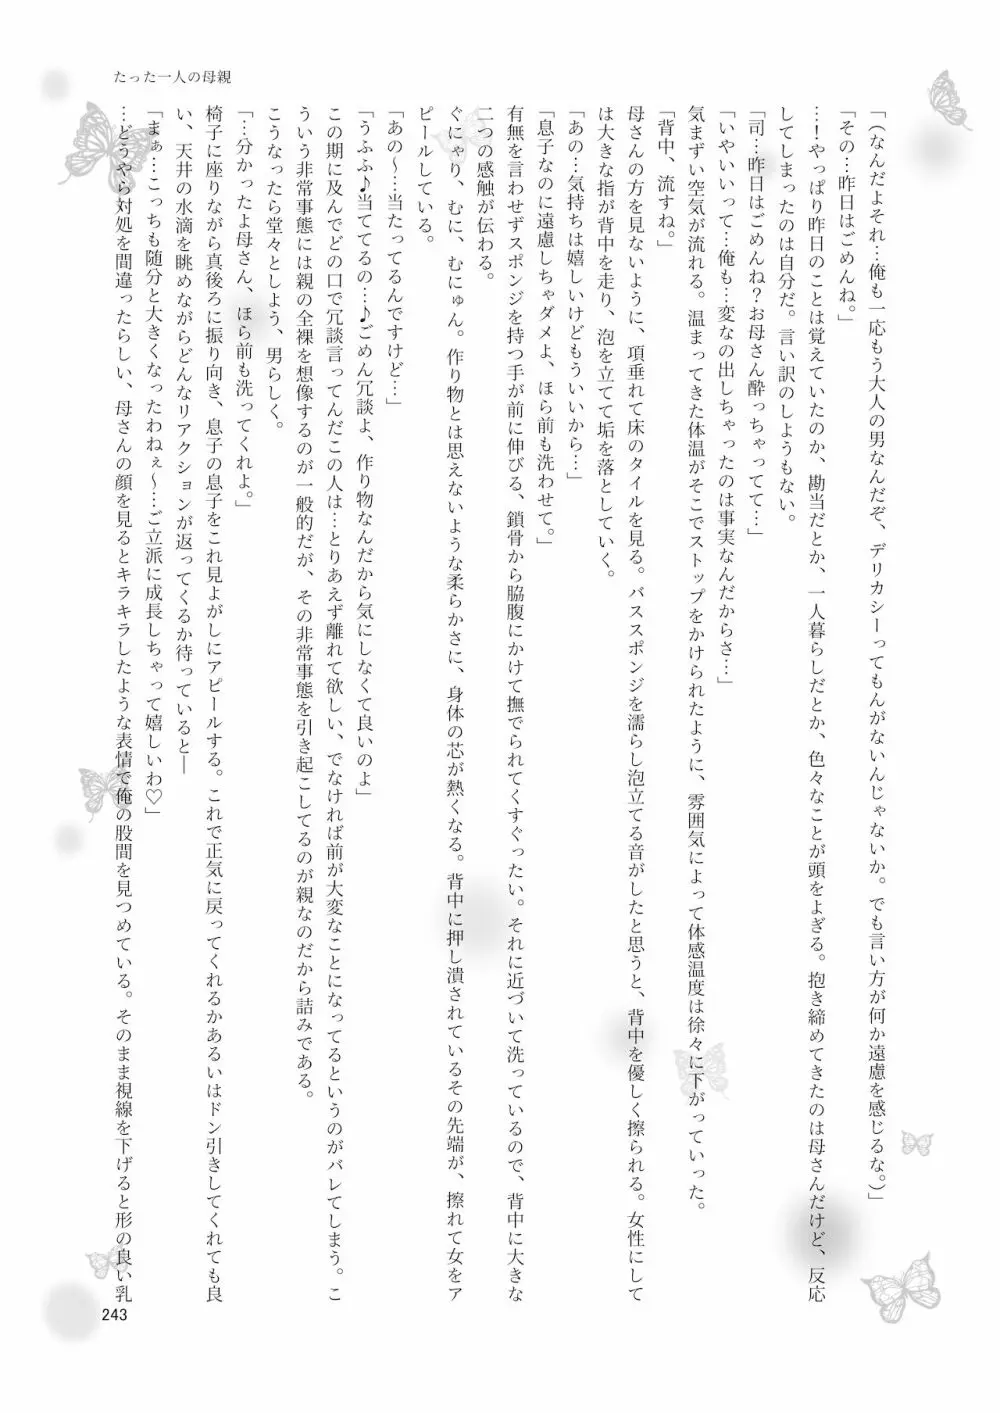 たった一人の母親
「(なんだよそれ…俺も一応もう大人の男なんだぞ、デリカシーってもんがないんじゃないか。でも言い方が何か遠慮を感じるな。)」
「その…昨日はごめんね。」
…！やっぱり昨日のことは覚えていたのか、勘当だとか、一人暮らしだとか、色々なことが頭をよぎる。抱き締めてきたのは母さんだけど、反応
してしまったのは自分だ。言い訳のしようもない。
「司…昨日はごめんね？お母さん酔っちゃってて…」
「いやいいって…俺も…変なの出しちゃったのは事実なんだからさ…」
気まずい空気が流れる。温まってきた体温がそこでストップをかけられたように、雰囲気によって体感温度は徐々に下がっていった。
「背中、流すね。」
母さんの方を見ないように、項垂れて床のタイルを見る。バススポンジを濡らし泡立てる音がしたと思うと、背中を優しく擦られる。女性にして
は大きな指が背中を走り、泡を立てて垢を落としていく。
「あの…気持ちは嬉しいけどもういいから…」
「息子なのに遠慮しちゃダメよ、ほら前も洗わせて。」
有無を言わせずスポンジを持つ手が前に伸びる、鎖骨から脇腹にかけて撫でられてくすぐったい。それに近づいて洗っているので、背中に大きな
二つの感触が伝わる。
ぐにゃり、むに、むにゅん。作り物とは思えないような柔らかさに、身体の芯が熱くなる。背中に押し潰されているその先端が、擦れて女をア
ピールしている。
「あの〜…当たってるんですけど…」
「うふふ♪当ててるの…♪ごめん冗談よ、作り物なんだから気にしなくて良いのよ」
この期に及んでどの口で冗談言ってんだこの人は…とりあえず離れて欲しい、でなければ前が大変なことになってるというのがバレてしまう。こ
ういう非常事態には親の全裸を想像するのが一般的だが、その非常事態を引き起こしてるのが親なのだから詰みである。
こうなったら堂々としよう、男らしく。
「…分かったよ母さん、ほら前も洗ってくれよ。」
椅子に座りながら真後ろに振り向き、息子の息子をこれ見よがしにアピールする。これで正気に戻ってくれるかあるいはドン引きしてくれても良
い、天井の水滴を眺めながらどんなリアクションが返ってくるか待っていると―
「まぁ…こっちも随分と大きくなったわねぇ〜…ご立派に成長しちゃって嬉しいわ♡」
…どうやら対処を間違ったらしい、母さんの顔を見るとキラキラしたような表情で俺の股間を見つめている。そのまま視線を下げると形の良い乳
243